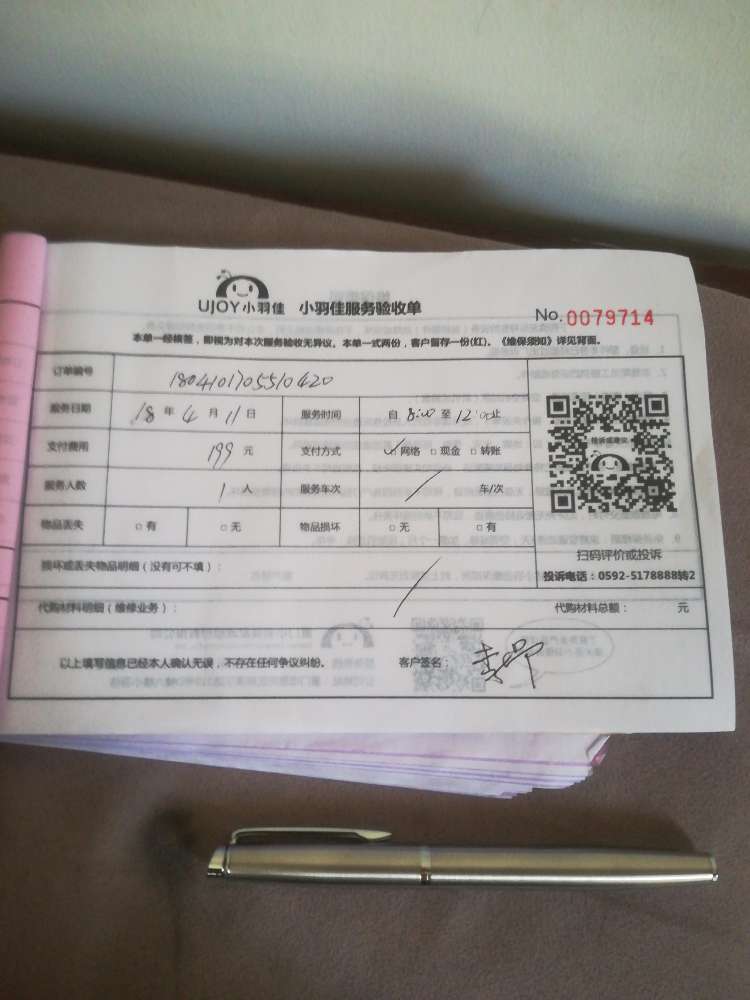 UJOY小羽佳 小羽佳服务验收单 No.0079714
本单一经核签，即视为对本次服务验收无异议。本单一式两份，客户留存一份(红)。《维保须知》详见背面。
订单编号 1804101705510420
服务日期 18年4月11日 服务时间 自8:00至12:00止
支付费用 199元 支付方式 ☑网络 □现金 □转账
服务人数 1人 服务车次 / 车/次
物品丢失 □有 □无 物品损坏 □无 □有
投诉或建议
扫码评价或投诉
投诉电话：0592-5178888转2
损坏或丢失物品明细（没有可不填）：
代购材料明细（维修业务）： 代购材料总额： 元
以上填写信息已经本人确认无误，不存在任何争议纠纷。 客户签名：